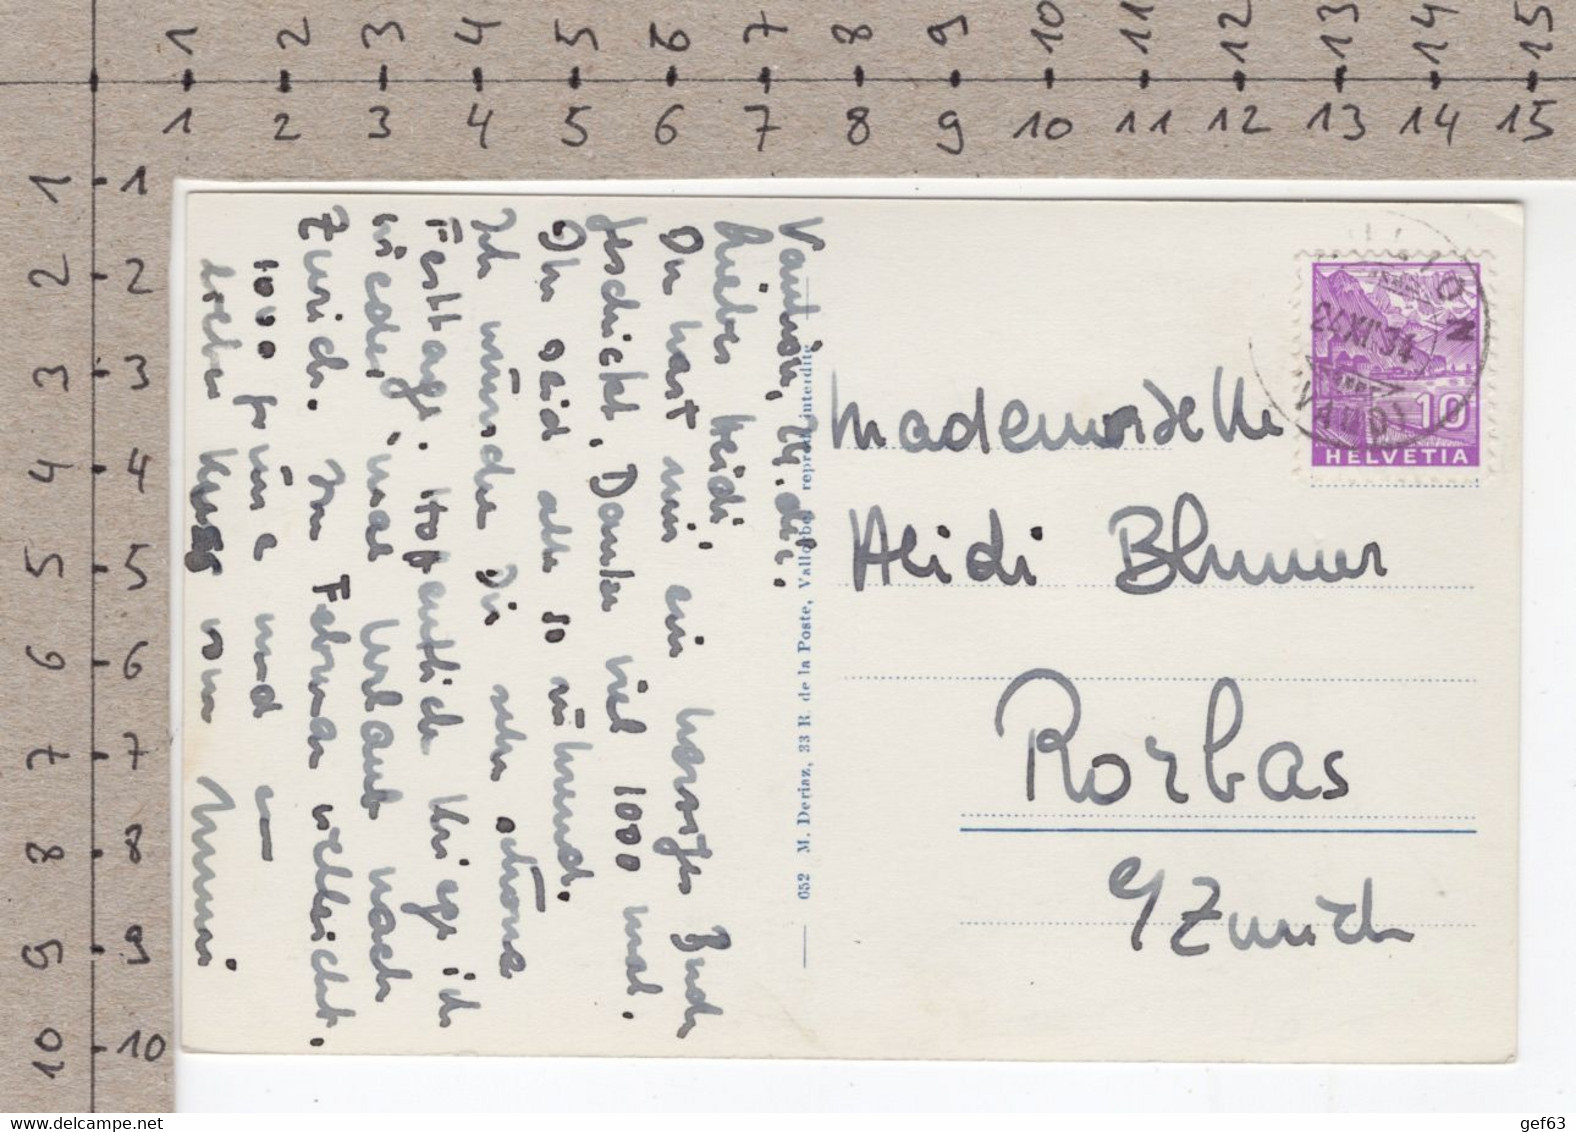 1 2 3 4 5 6 7 8 9 10 11 12 13 14 15
1 2 3 4 5 6 7 8 9 10 11 12 13 14 15
1 1
2 2
3 3
4 4
5 5
6 6
7 7
8 8
9 9
10 10
Liebes Heidi!
Du hast mir ein herziges Buch
geschickt. Danke viel 1000 mal.
Ihr seid alle so rührend.
Ich wünsche Dir sehr schöne
Festtage. Hoffentlich kriege ich
wieder 'mal Urlaub nach
Zürich. Im Februar vielleicht.
1000 Grüsse und en
lieben Kuss vom
652 M. Deriaz, 33 R. de la Poste, Vallorbe, reprod. interdite
Mademoiselle
Heidi Blumer
Rorbas
c/Zürich
24.XII.34
VAUD
10
HELVETIA
gef63